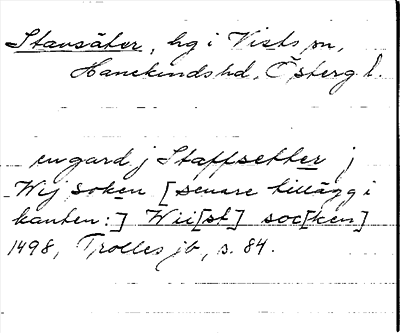 Stavsäter, hg i Vists sn,
Hanekinds hd, Österg l.
en gard j Staffsetter j
Wij soken [senare tillägg i
kanten:] Wii[st] soc[ken]
1498, Trolles jb, s. 84.